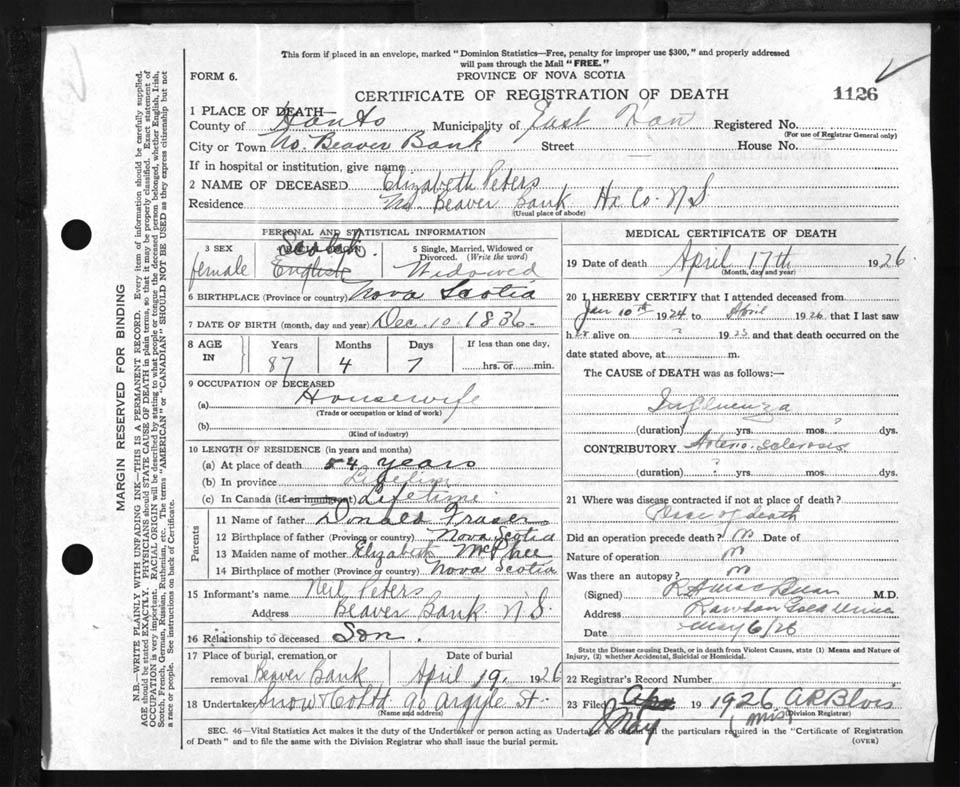 This form if placed in an envelope, marked "Dominion Statistics—Free, penalty for improper use $300," and properly addressed
will pass through the Mail "FREE."
FORM 6.
PROVINCE OF NOVA SCOTIA
CERTIFICATE OF REGISTRATION OF DEATH
1126
1 PLACE OF DEATH—
County of Hants Municipality of East Han Registered No.
(For use of Registrar General only)
City or Town No. Beaver Bank Street House No.
If in hospital or institution, give name
2 NAME OF DECEASED Elizabeth Peters
Residence No Beaver Bank Hx Co. N.S
(Usual place of abode)
PERSONAL AND STATISTICAL INFORMATION
3 SEX
female
Scotch
English
5 Single, Married, Widowed or
Divorced. (Write the word)
Widowed
6 BIRTHPLACE (Province or country) Nova Scotia
7 DATE OF BIRTH (month, day and year) Dec 10 1836
8 AGE IN
Years Months Days If less than one day,
87 4 7 hrs. or min.
9 OCCUPATION OF DECEASED
(a) Housewife
(Trade or occupation or kind of work)
(b)
(Kind of industry)
10 LENGTH OF RESIDENCE (in years and months)
(a) At place of death 54 years
(b) In province Lifetime
(c) In Canada (if an immigrant) Lifetime
Parents
11 Name of father Donald Fraser
12 Birthplace of father (Province or country) Nova Scotia
13 Maiden name of mother Elizabeth McPhee
14 Birthplace of mother (Province or country) Nova Scotia
15 Informant's name Neil Peters
Address Beaver Bank N.S.
16 Relationship to deceased Son.
17 Place of burial, cremation, or Date of burial
removal Beaver Bank April 19, 1926
18 Undertaker Snow & Co Ltd 90 Argyle St.
(Name and address)
MEDICAL CERTIFICATE OF DEATH
19 Date of death April 17th 1926
(Month, day and year)
20 I HEREBY CERTIFY that I attended deceased from
Jan 10th 1924 to April 1926 that I last saw
her alive on ? 1925 and that death occurred on the
date stated above, at m.
The CAUSE of DEATH was as follows:—
Influenza
(duration) yrs. mos. ? dys.
CONTRIBUTORY Arterio-sclerosis
(duration) ? yrs. mos. dys.
21 Where was disease contracted if not at place of death?
Place of death
Did an operation precede death? no Date of
Nature of operation no
Was there an autopsy? no
(Signed) M.D.
Address Rawdon Gold Mines
Date May 6/26
State the Disease causing Death, or in death from Violent Causes, state (1) Means and Nature of
Injury, (2) whether Accidental, Suicidal or Homicidal.
22 Registrar's Record Number
23 Filed Apr 19 1926 A R Blois
May (Miss) (Division Registrar)
SEC. 46—Vital Statistics Act makes it the duty of the Undertaker or person acting as Undertaker to obtain all the particulars required in the "Certificate of Registration
of Death" and to file the same with the Division Registrar who shall issue the burial permit.
(OVER)
MARGIN RESERVED FOR BINDING
N.B.—WRITE PLAINLY WITH UNFADING INK—THIS IS A PERMANENT RECORD. Every item of information should be carefully supplied.
AGE should be stated EXACTLY. PHYSICIANS should STATE CAUSE OF DEATH in plain terms, so that it may be properly classified. Exact statement of
OCCUPATION is very important. RACIAL ORIGIN will be described by stating to what people or tongue the deceased person belonged, whether English, Irish,
Scotch, French, German, Russian, Ruthenian, etc. The terms "AMERICAN" or "CANADIAN" SHOULD NOT BE USED as they express citizenship but not
a race or people. See instructions on back of Certificate.